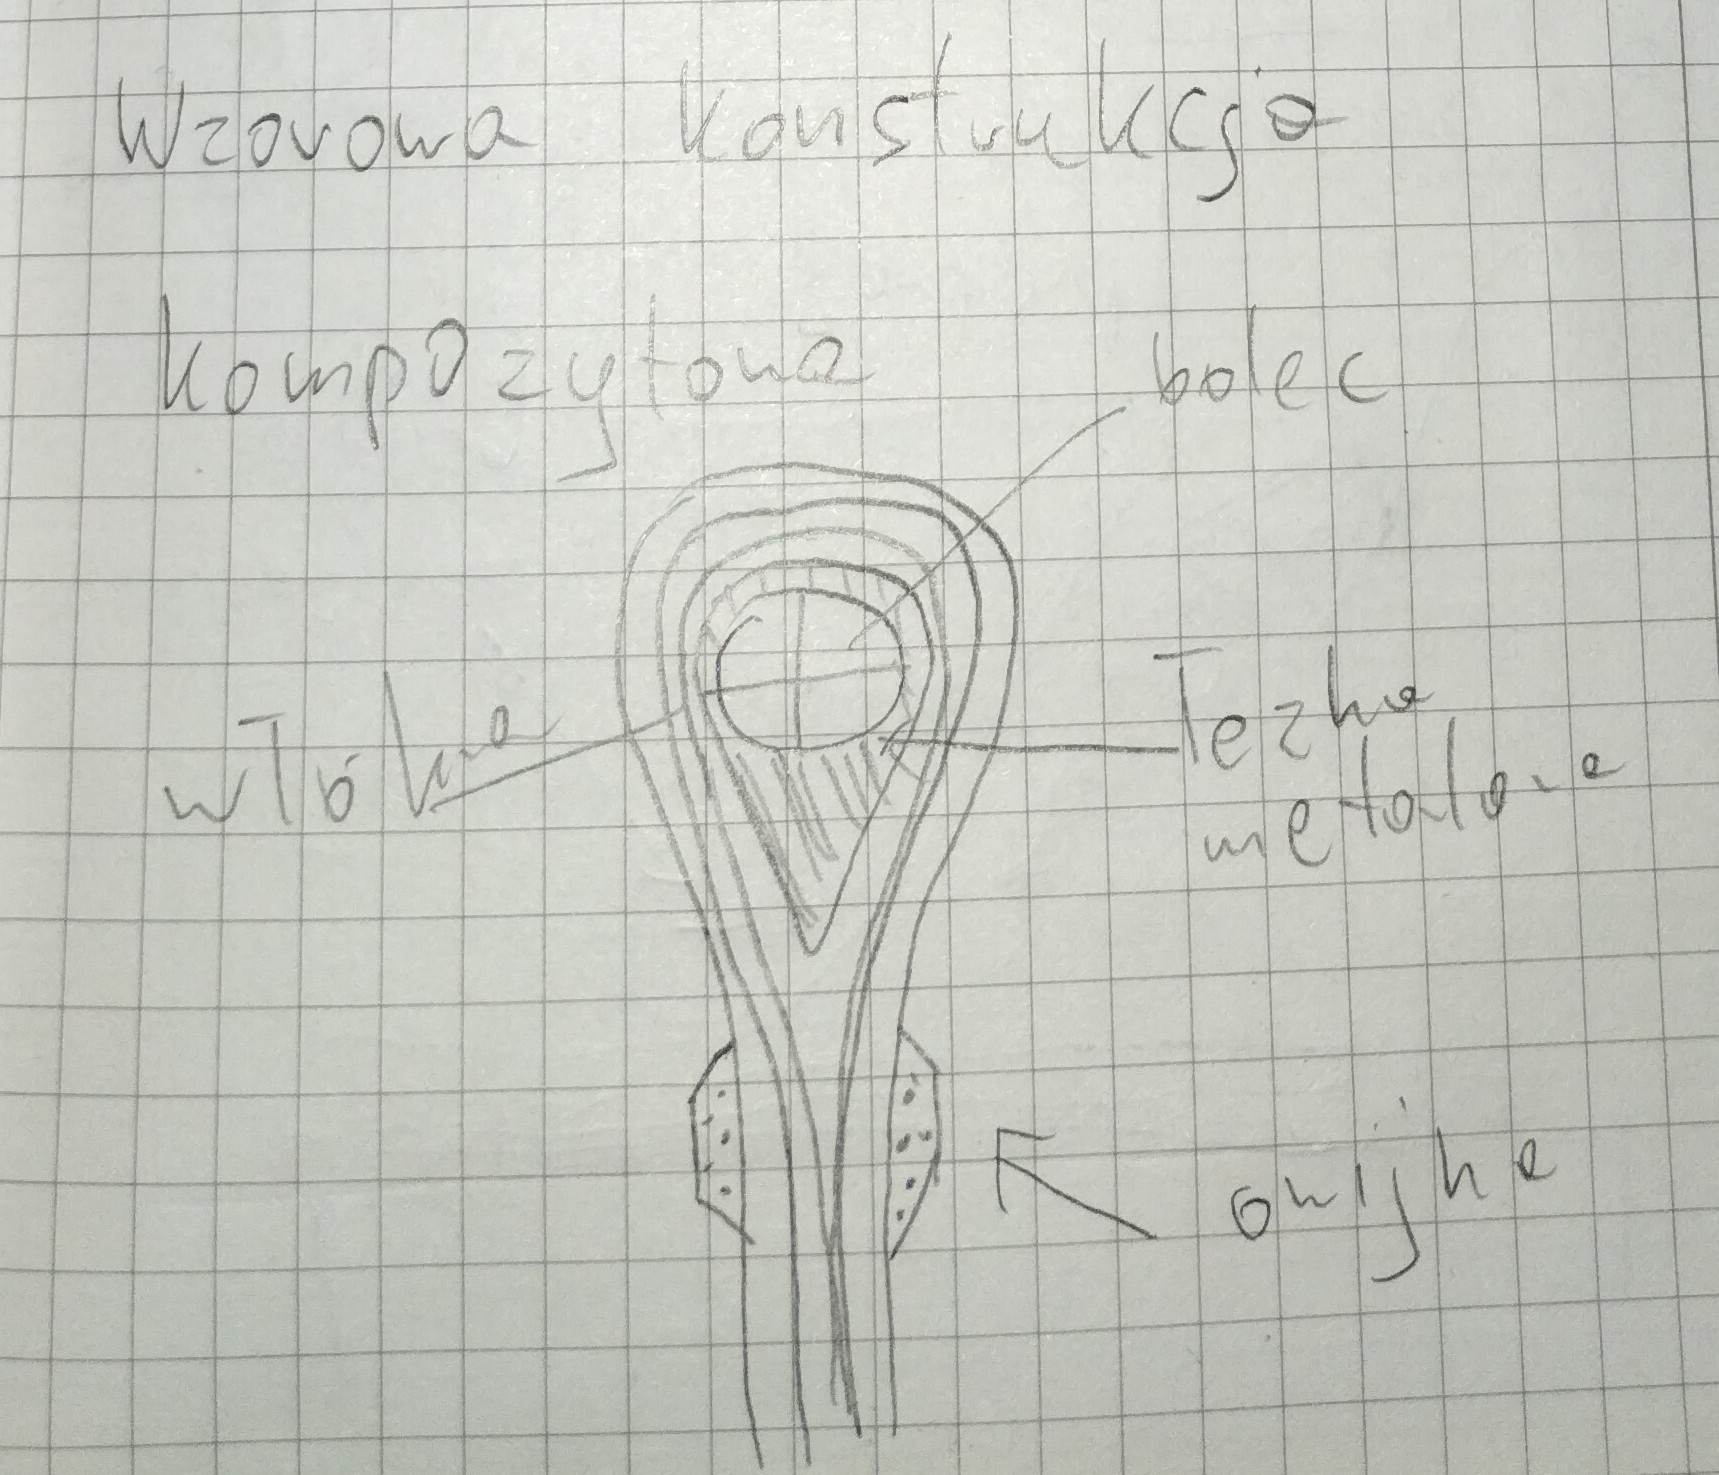 Wzorowa konstrukcja
kompozytowa
bolec
włókna
Łezka
metalowa
owijka